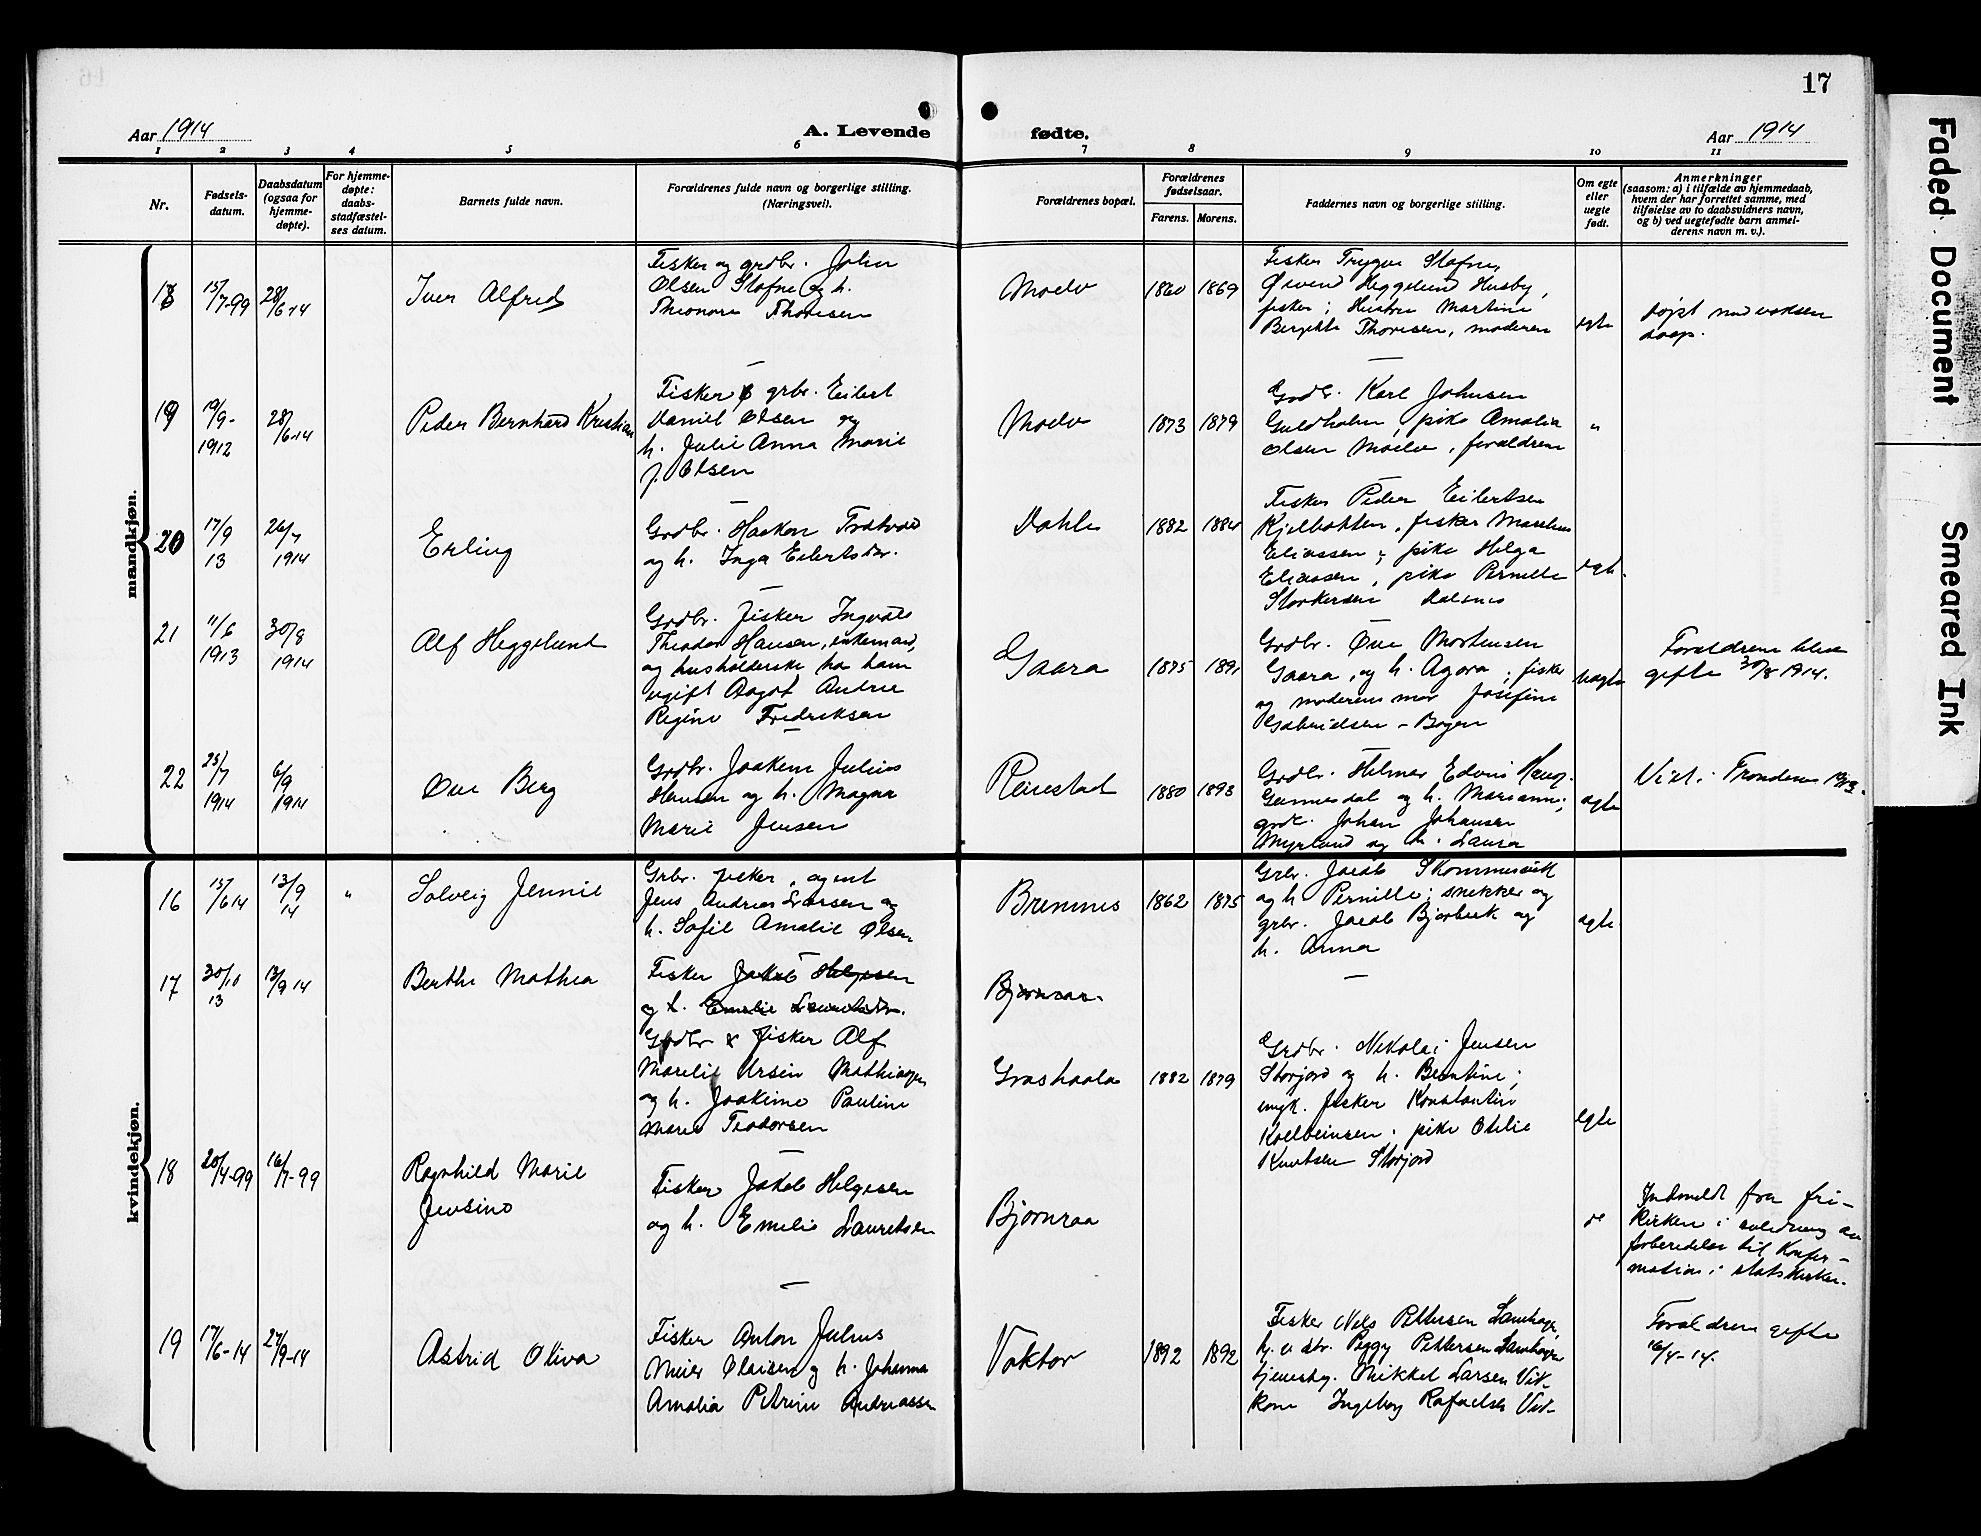 17
Aar 1914
A. Levende
fødte.
Aar 1914
1 2 3 4 5 6 7 8 9 10 11
Nr.
Fødsels-
datum.
Daabsdatum
(ogsaa for
hjemme-
døpte).
For hjemme-
døpte:
daabs-
stadfæstel-
ses datum.
Barnets fulde navn.
Forældrenes fulde navn og borgerlige stilling.
(Næringsvei).
Forældrenes bopæl.
Forældrenes
fødselsaar.
Farens. Morens.
Faddernes navn og borgerlige stilling.
Om egte
eller
uegte
født.
Anmerkninger
(saasom: a) i tilfælde av hjemmedaab,
hvem der har forrettet samme, med
tilføielse av to daabsvidners navn,
og b) ved uegtefødte barn anmel-
derens navn m. v.).
mandkjøn.
18
15/7-99
28/6-14
Iver Alfred
Fisker og grdbr. John
Olsen Stofne og h.
Theonora Thoresen
Moelv
1860
1869
Fisker Trygve Stofne,
Øivind Heggelund Husby,
fisker; Hustru Martine
Bergitte Thoresen, moderen
egte
døpt med voksen
daap.
19
19/9-
1912
28/6-14
Peder Bernhard Kristian
Fisker & grbr. Eilert
Daniel Olsen og
h. Julie Anna Marie
f. Olsen
Moelv
1873
1879
Grdb. Karl Johnsen
Guldholm, pike Amalia
Olsen Moelv, forældrene
"
20
17/9
13
26/7
1914
Erling
Grdbr. Haakon
og h. Inga Eilertsdtr.
Dahle
1882
1884
Fisker Peder Eilertsen
Kjelbotten, fisker
Eliassen, pike Helga
Eliassen, pike Pernille
Storkersen Dalsnes
egte.
21
11/6
1913
30/8
1914
Alf Heggelund
Grdbr. fisker Ingvald
Theodor Hansen, enkemand,
og husholderske hos ham
ugift Aagot Andrea
Regine Fredriksen
Gaara
1875
1891
Grdbr. Ove Mortensen
Gaara, og h. Agora; fisker
og moderens mor Josefine
Gabrielsen - Bogen
uegte
Forældrene blev
gifte 30/8 1914.
22
25/7
1914
6/9
1914
Ove Berg
Grdbr. Joakim Julius
Hansen og h. Magna
Marie Jensen
Reinstad
1880
1893
Grdbr. Hilmar Edvin Haug
Gunnesdal og h. Mariann;
grdb. Johan Johansen
Myrland og h. Laura
egte
Viet i Trondenes
kvindekjøn.
16
15/6 14
13/9
14
"
Solveig Jennie
Grbr. fisker, agent
Jens Andreas Larsen og
h. Sofie Amalie Olsen
Bremnes
1862
1875
Grbr. Jacob Skommesvik
og h Pernille; snekker og
grbr. Jacob Bjørbæk og
h. Anna
egte
17
30/10
13
13/9 14
Berthe Mathea
Fisker Jakob Helgesen
og h. Emelie Lauritsdtr.
Grdbr & fisker Alf
Marelie Ursin Mathisen
og h. Joakime Pauline
Marie Teodorsen
Bjørnraa.
Grashaala
1882
1879
Grdbr. Nikolai Jensen
Storjord og h. Berntine;
ungk. fisker Konstantin
Kolbeinsen; pike Otilie
Knutsen Storjord
egte
18
20/4-99
16/7-99
Ragnhild Marie
Jensine
Fisker Jakob Helgesen
og h. Emelie Lauritsdtr
Bjørnraa
do
Indmeldt fra fri-
kirken i anledning av
forberedelse til Konfir-
mation i statskirken.
19
17/6-14
27/9-14
Astrid Oliva
Fisker Anton Julius
Meier Olaisen og h. Johanna
Amalia Petrine Andreassen
Voktor
1892
1892
Fisker Nils Pettersen
Peggy Pettersen
tjenestg. Mikkel Larsen Vik-
Ingeborg Rafaelsen Vik-
Forældrene gifte
16/4-14.
Faded Document
Smeared Ink